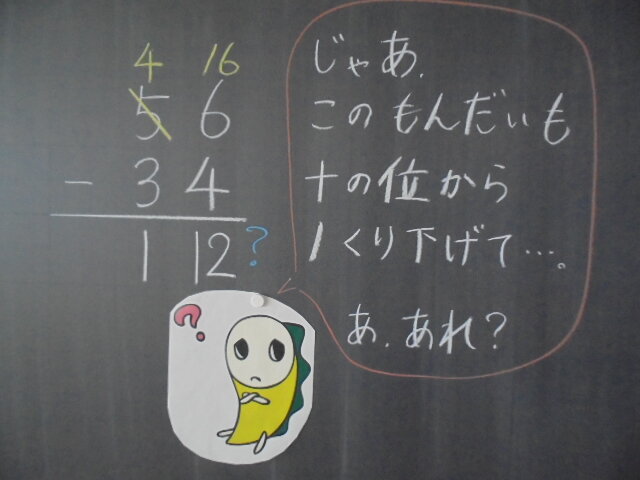 4 16
5 6
- 3 4
1 12?
じゃあ、
このもんだいも
十の位から
1くり下げて…。
あ、あれ?
?